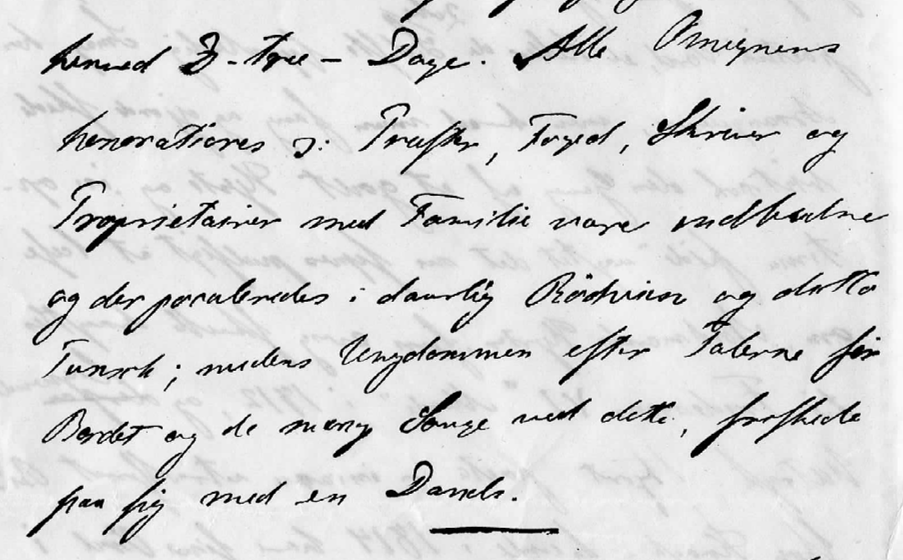 henved 3-tree - Dage. Alle Omegnens
honoratiores ɔ: Præster, Foged, Skriver og
Proprietairer med Familie vare indbudne
og der poculeredes i daarlig Rödviin og ditto
Punsch; medens Ungdommen efter Talerne for
Bordet og de mange Sange ved dette, friskede
paa sig med en Dands.